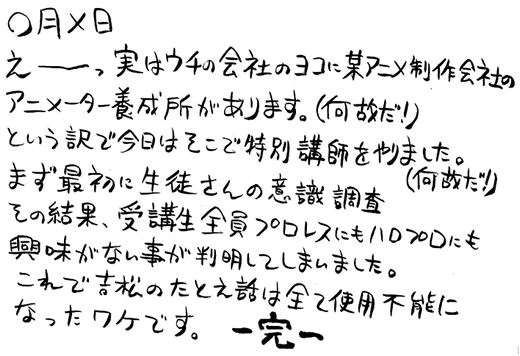 ○月×日
え――っ実はウチの会社のヨコに某アニメ制作会社の
アニメーター養成所があります。(何故だ!)
という訳で今日はそこで特別講師をやりました。
(何故だ!)
まず最初に生徒さんの意識調査
その結果、受講生全員プロレスにもハロプロにも
興味がない事が判明してしまいました。
これで吉松のたとえ話は全て使用不能に
なったワケです。 ー完ー